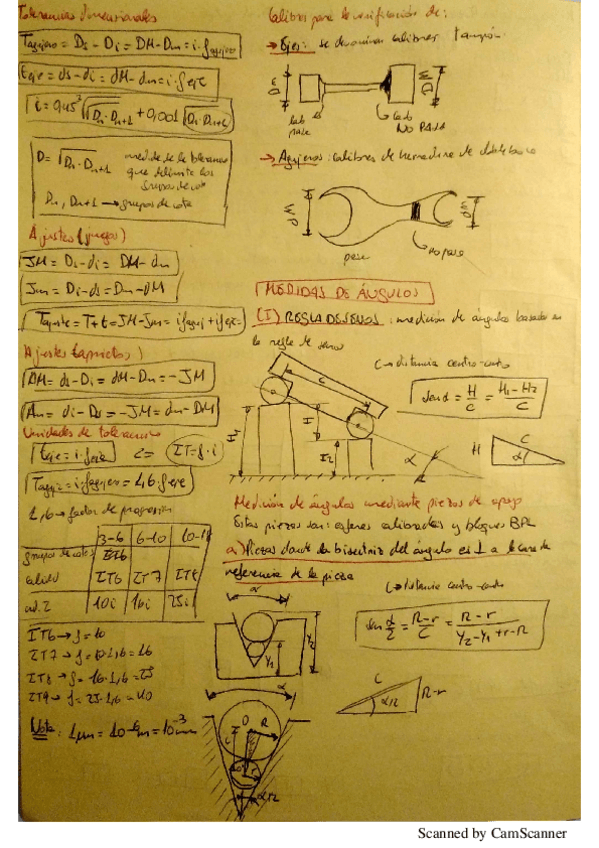 Tolerancias dimensionales
Tagujero = Ds - Di = DM - Dm = i·fagujero
Teje = ds - di = dM - dm = i·feje
i = 0,45 ³√(√Dn·Dn+1) + 0,001 √Dn·Dn+1
D = √Dn·Dn+1
que delimita los
grupos de cota
Dn, Dn+1 → grupos de cota
Ajustes (juegos)
JM = Ds - di = DM - dm
Jm = Di - ds = Dm - dM
Tajuste = T + t = JM - Jm = i·faguj + i·feje
Ajustes (aprietos)
AM = ds - Di = dM - Dm = -JM
Am = di - Ds = -JM = dm - DM
Unidades de tolerancia
Teje = i·feje
IT = f·i
Tagujero = i·fagujero = 1,6·feje
1,6 → factor de progresión
3-6 6-10 10-18
grupos de cotas IT6
calidad IT6 IT7 IT8
10i 16i 25i
IT6 → f = 10
IT7 → f = 10·1,6 = 16
IT8 → f = 16·1,6 = 25
IT9 → f = 25·1,6 = 40
Nota: 1μm = 10⁻⁶m = 10⁻³mm
Calibres para la verificación de:
→ Ejes: se denominan calibres tampón
lado
pasa
lado
NO PASA
→ Agujeros: calibres de herradura de doble boca
pasa
no pasa
MEDIDAS DE ÁNGULOS
(I) REGLA DE SENOS: medición de ángulos basados en
la regla de senos
C → distancia centro-centro
sen α = H/C = (H1 - H2)/C
C
H1
H
H2
α
H
C
α
Medición de ángulos mediante piezas de apoyo
Estas piezas son: esferas calibradas y bloques BPL
a) Piezas donde la bisectriz del ángulo es ⊥ a la cara de
referencia de la pieza
C → distancia centro-centro
sen α/2 = (R - r)/C = (R - r)/(Y2 - Y1 + r - R)
α
Y1
Y2
α
O
R
C
r
α/2
C
α/2
R-r
Scanned by CamScanner